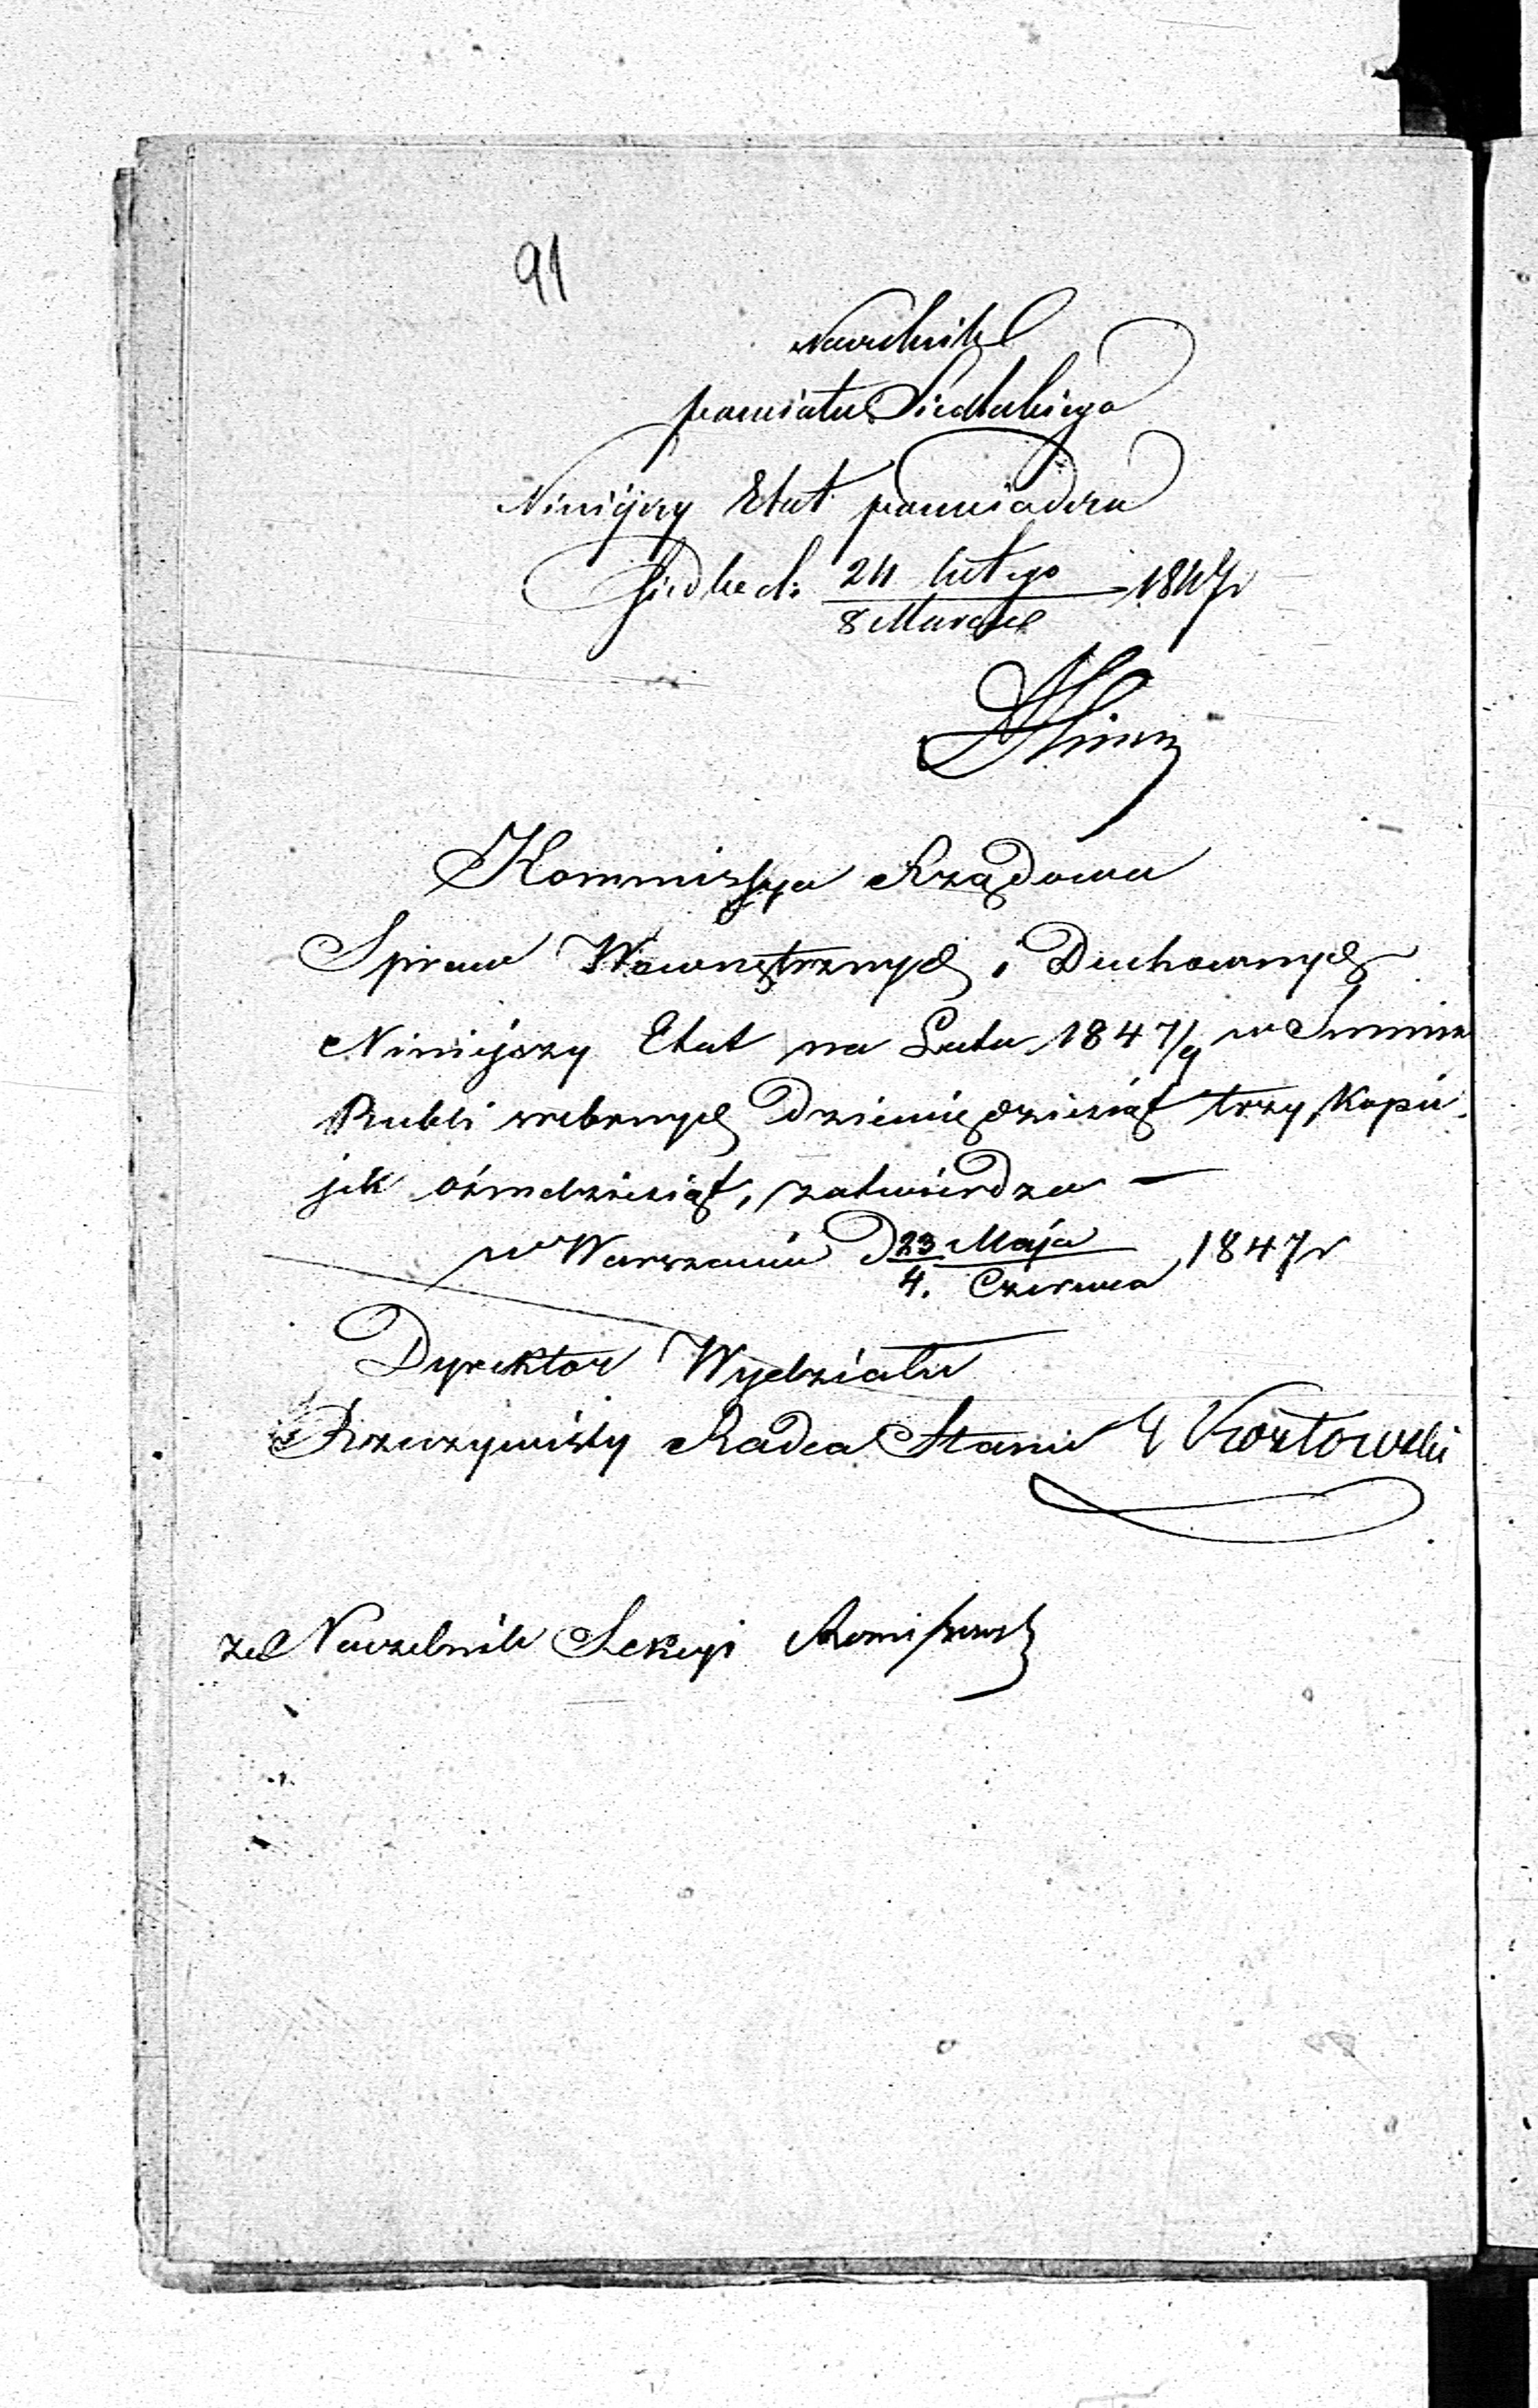 91
Naczelnik
powiatu Siedleckiego
Niniejszy Etat poświadcza
Siedlce d. 24 lutego 1847 r
8 Marca
Kommissya Rządowa
Spraw Wewnętrznych i Duchownych
Niniejszy Etat na Lata 1847/9 w Summie
Rubli srebrnych Dziewiędziesiąt trzy, Kopie
jek ośmdziesiąt, zatwierdza —
w Warszawie D 23 Maja 1847 r
4. Czerwca
Dyrektor Wydziału
Rzeczywisty Radca Stanu Kozłowski
za Naczelnik Sekcyi